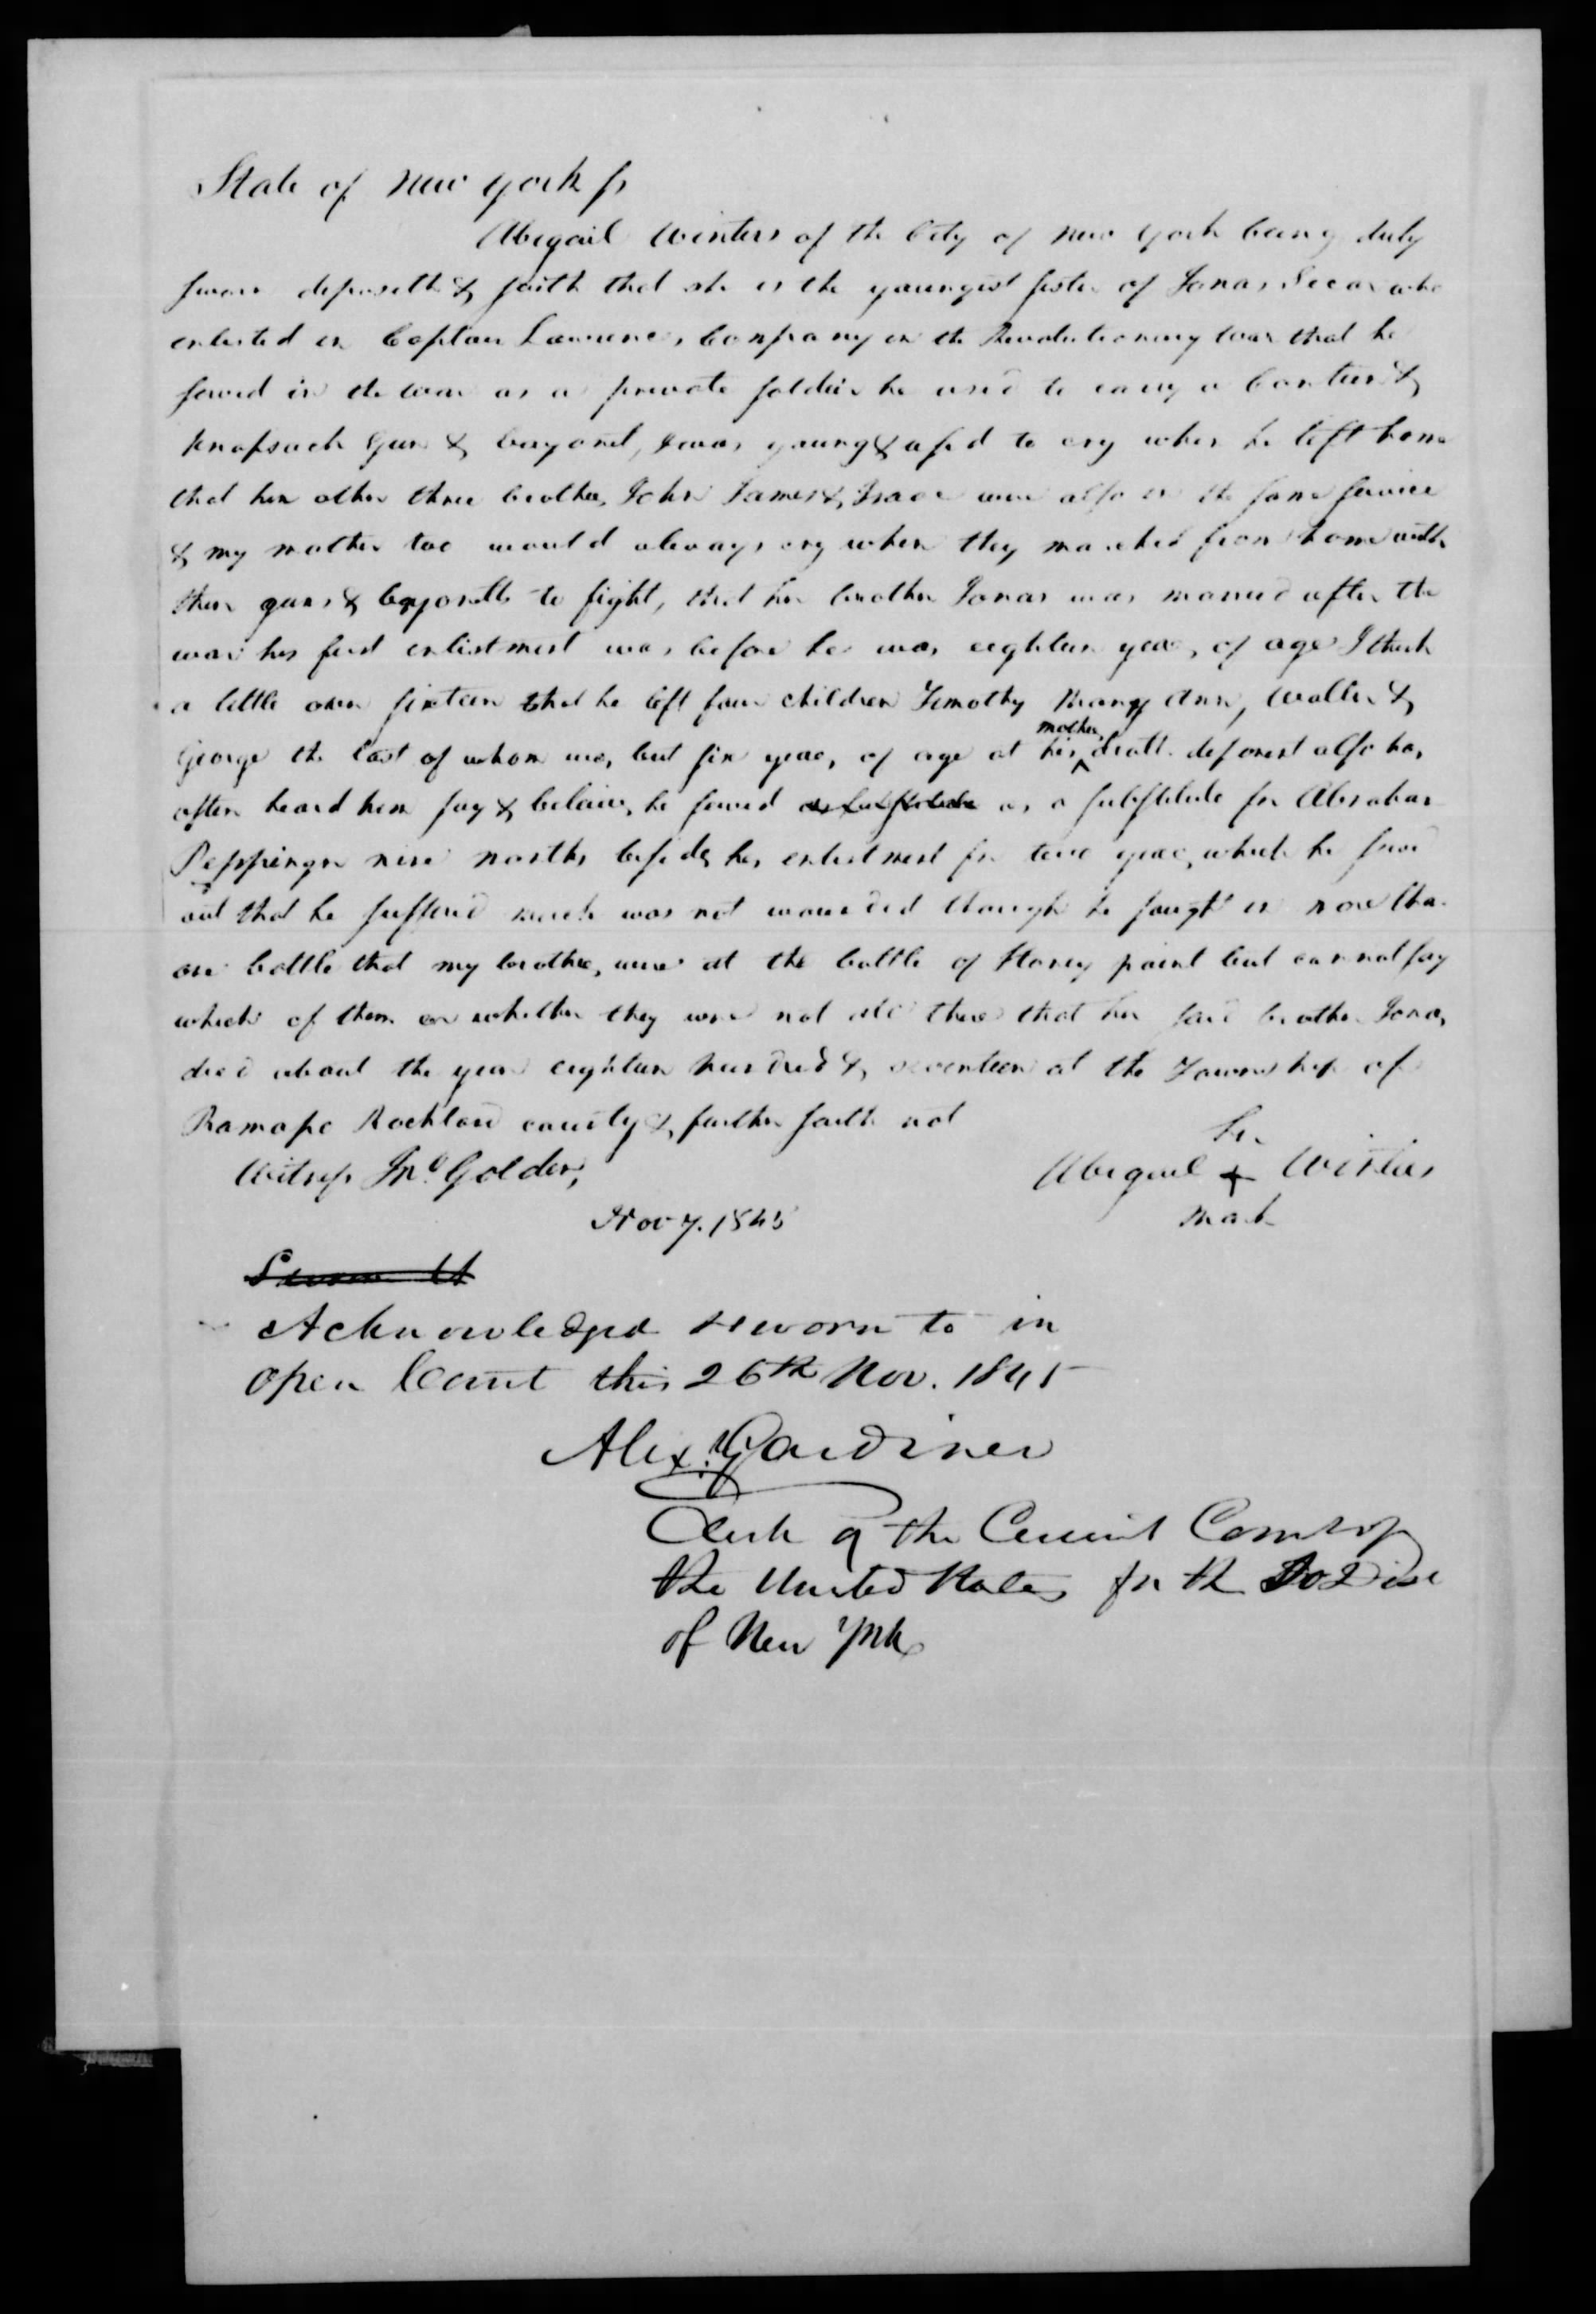 State of New York ss
Abigail Winters of the City of New York being duly
sworn deposeth & saith that she is the youngest sister of Jonas Secor who
enlisted in Captain Lawrences Company in the Revolutionary War that he
served in the war as a private soldier he used to carry a Canteen &
knapsack Gun & bayonet, I was young & used to cry when he left home
that her other three brothers John James & Isaac were also in the same service
& my mother too would always cry when they marched from home with
their guns & bayonetts to fight, that her brother Jonas was married after the
war his first enlistment was before he was eighteen years of age I think
a little over sixteen that he left four children Timothy Mary Ann, Walter &
George the last of whom was but six years of age at his mothers death deponent also has
often heard him say & believes he served as substitute as a substitute for Abraham
nine months besides his enlistment for two years which he served
out that he suffered much was not wounded though he fought in more than
one battle that my brothers were at the battle of Stoney point but cannot say
which of them or whether they were not all there that her said brother Jonas
died about the year eighteen hundred & seventeen at the Township of
Ramapo Rockland county & further saith not
Witness Jno. Golder,
her
Abigail + Winters
mark
Nov 7. 1845
Sworn to
Acknowledged & sworn to in
open Court this 26th Nov. 1845
Alex. Gardiner
Clerk of the Circuit Court of
the United States for the So Dist
of New York